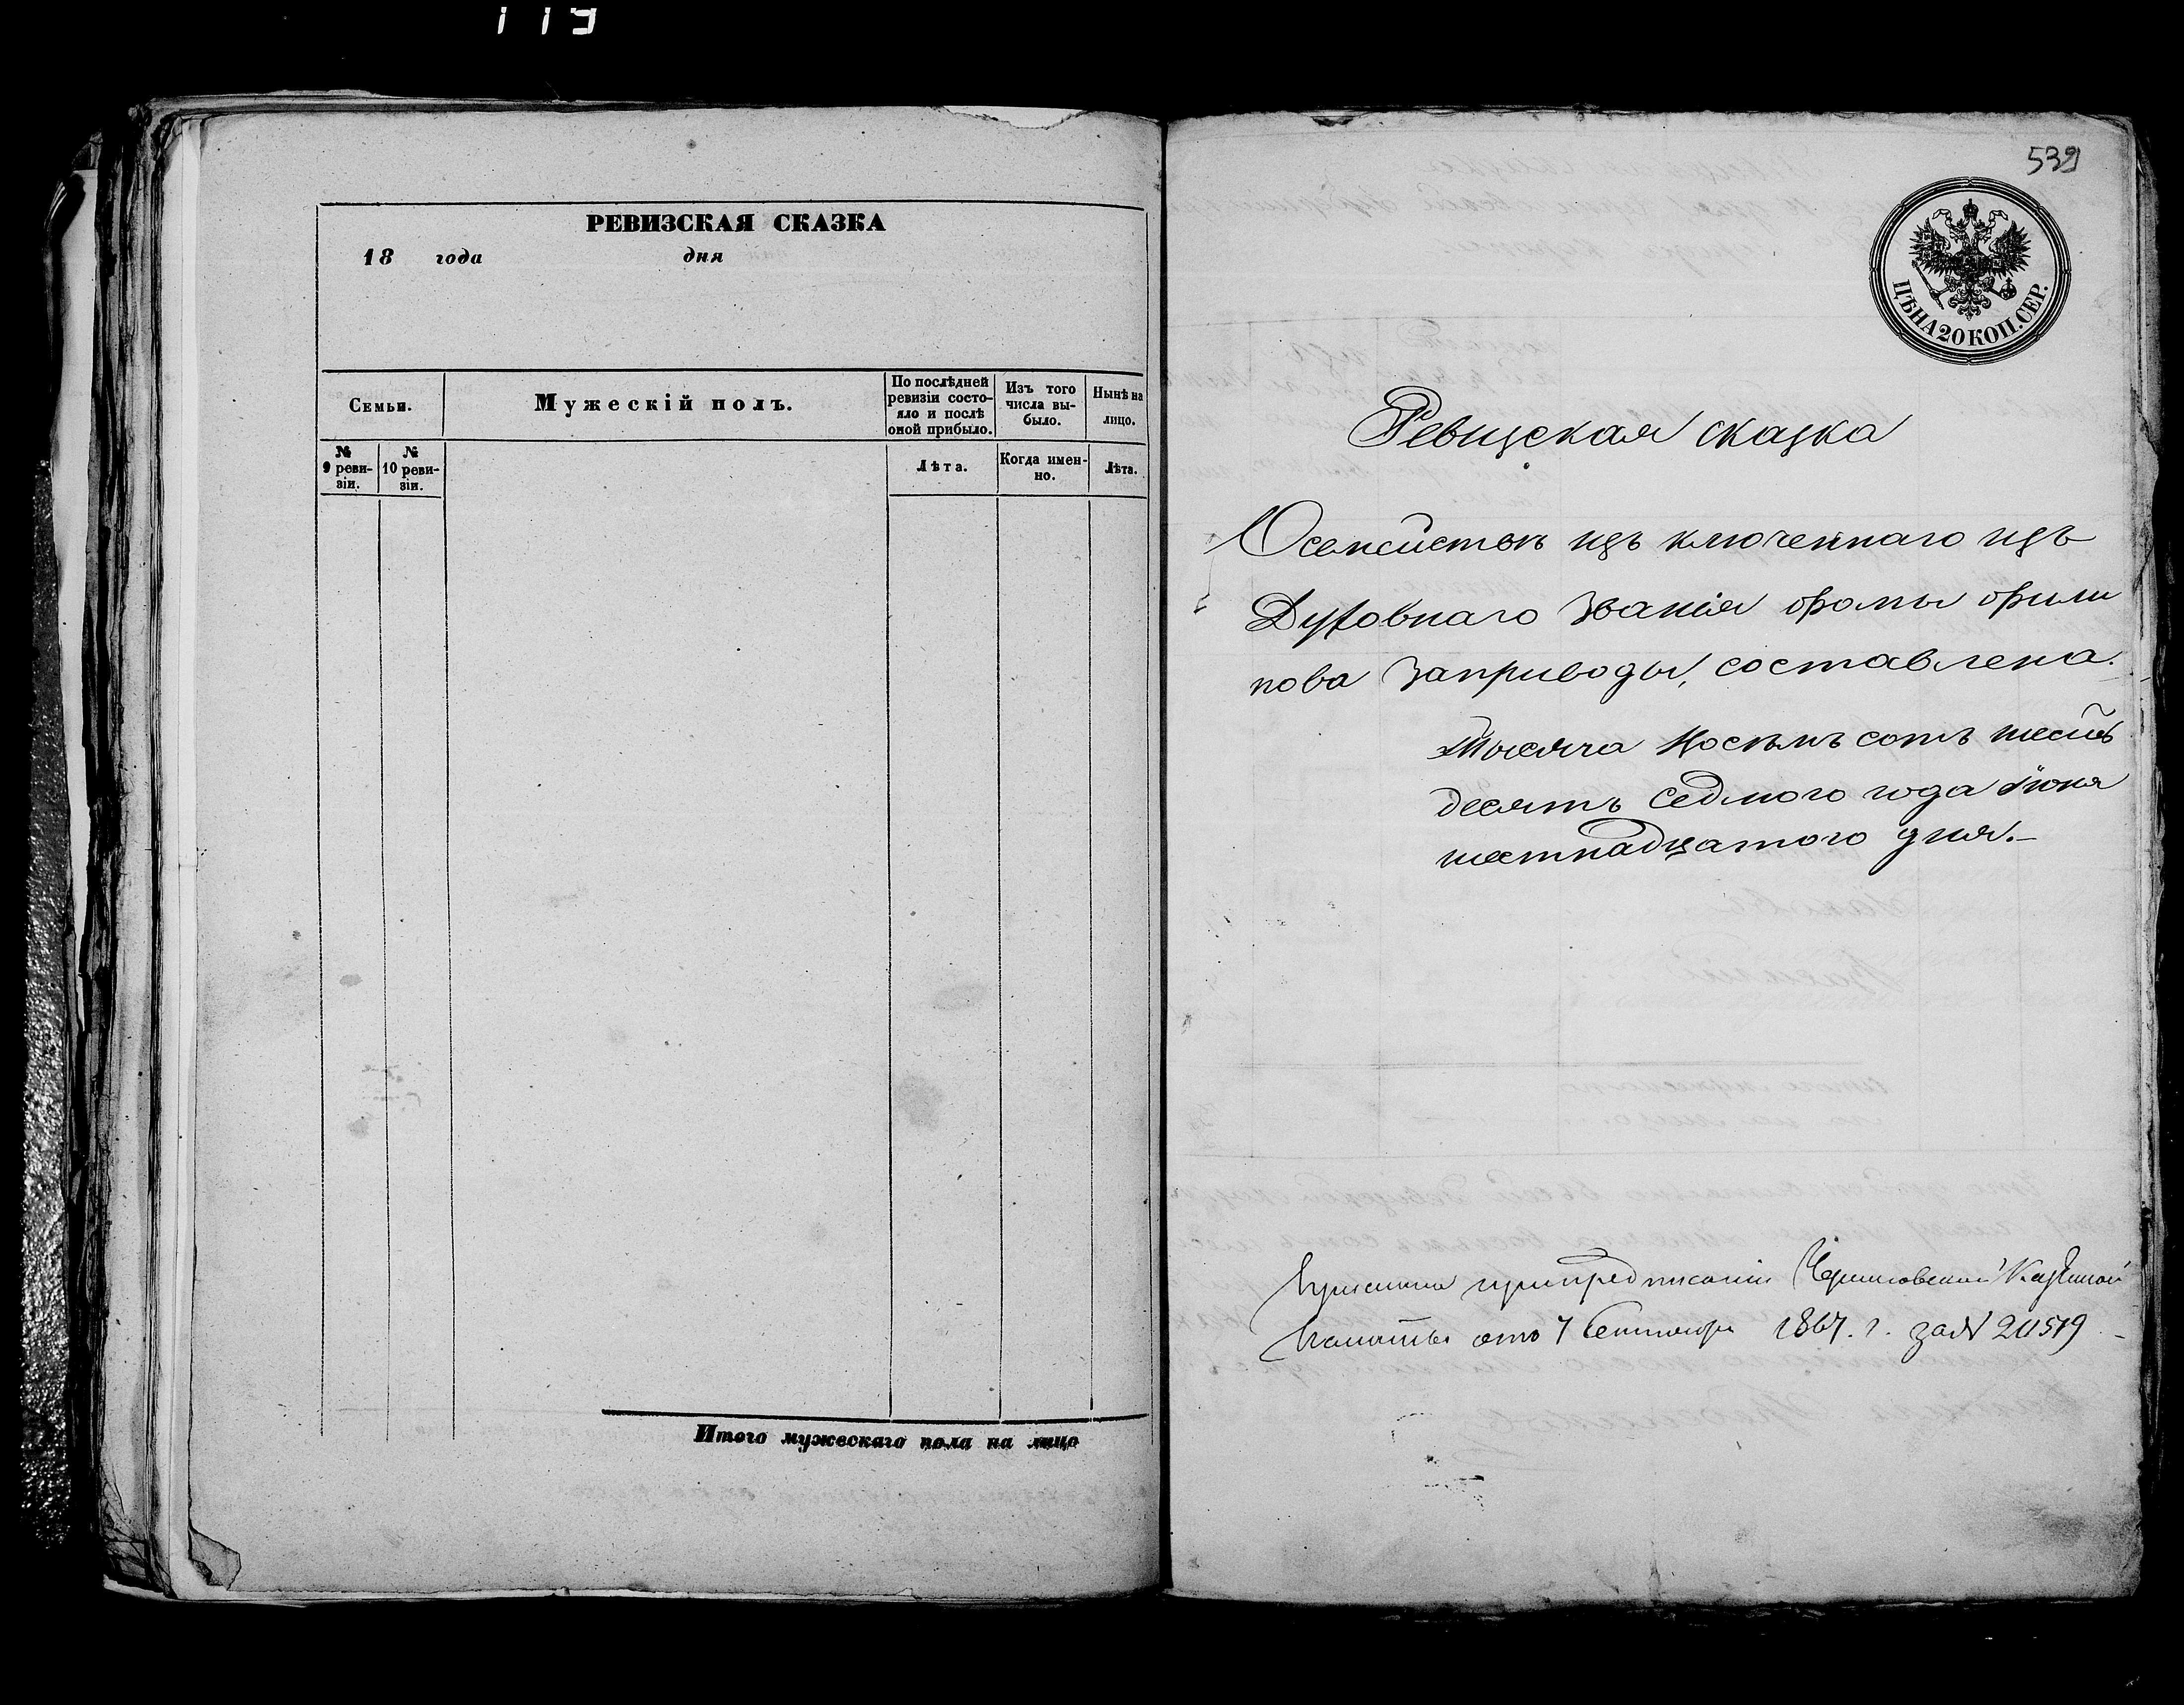 119
РЕВИЗСКАЯ СКАЗКА
18 года дня
Семьи.
Мужескій полъ.
По послѣдней ревизіи состояло и послѣ оной прибыло.
Изъ того числа выбыло.
Нынѣ на лицо.
№ 9 ревизіи.
№ 10 ревизіи.
Лѣта.
Когда именно.
Лѣта.
Итого мужескаго пола на лицо
539
ЦѢНА 20 КОП. СЕР.
Ревизская сказка
Осемействѣ изъ ключеннаго изъ
Духовнаго Званія Фомы Фили
пова Заприводы, составлена.
Тысяча Восѣмъ сотъ шесть
десятъ седмого года Іюня
шестнадцатого дня.
при предписаніи Черниговской Казенной
Палаты отъ 7 Сентября 1867. г. за № 20519